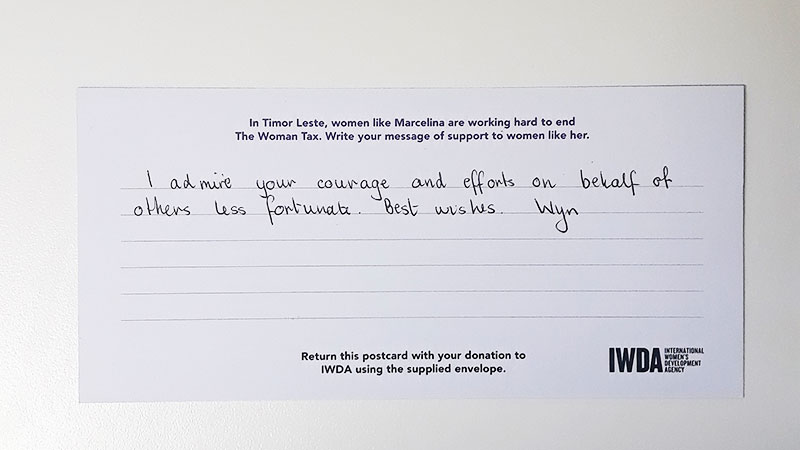 In Timor Leste, women like Marcelina are working hard to end
The Woman Tax. Write your message of support to women like her.
I admire your courage and efforts on behalf of
others less fortunate. Best wishes. Wyn
Return this postcard with your donation to
IWDA using the supplied envelope.
IWDA
INTERNATIONAL
WOMEN'S
DEVELOPMENT
AGENCY